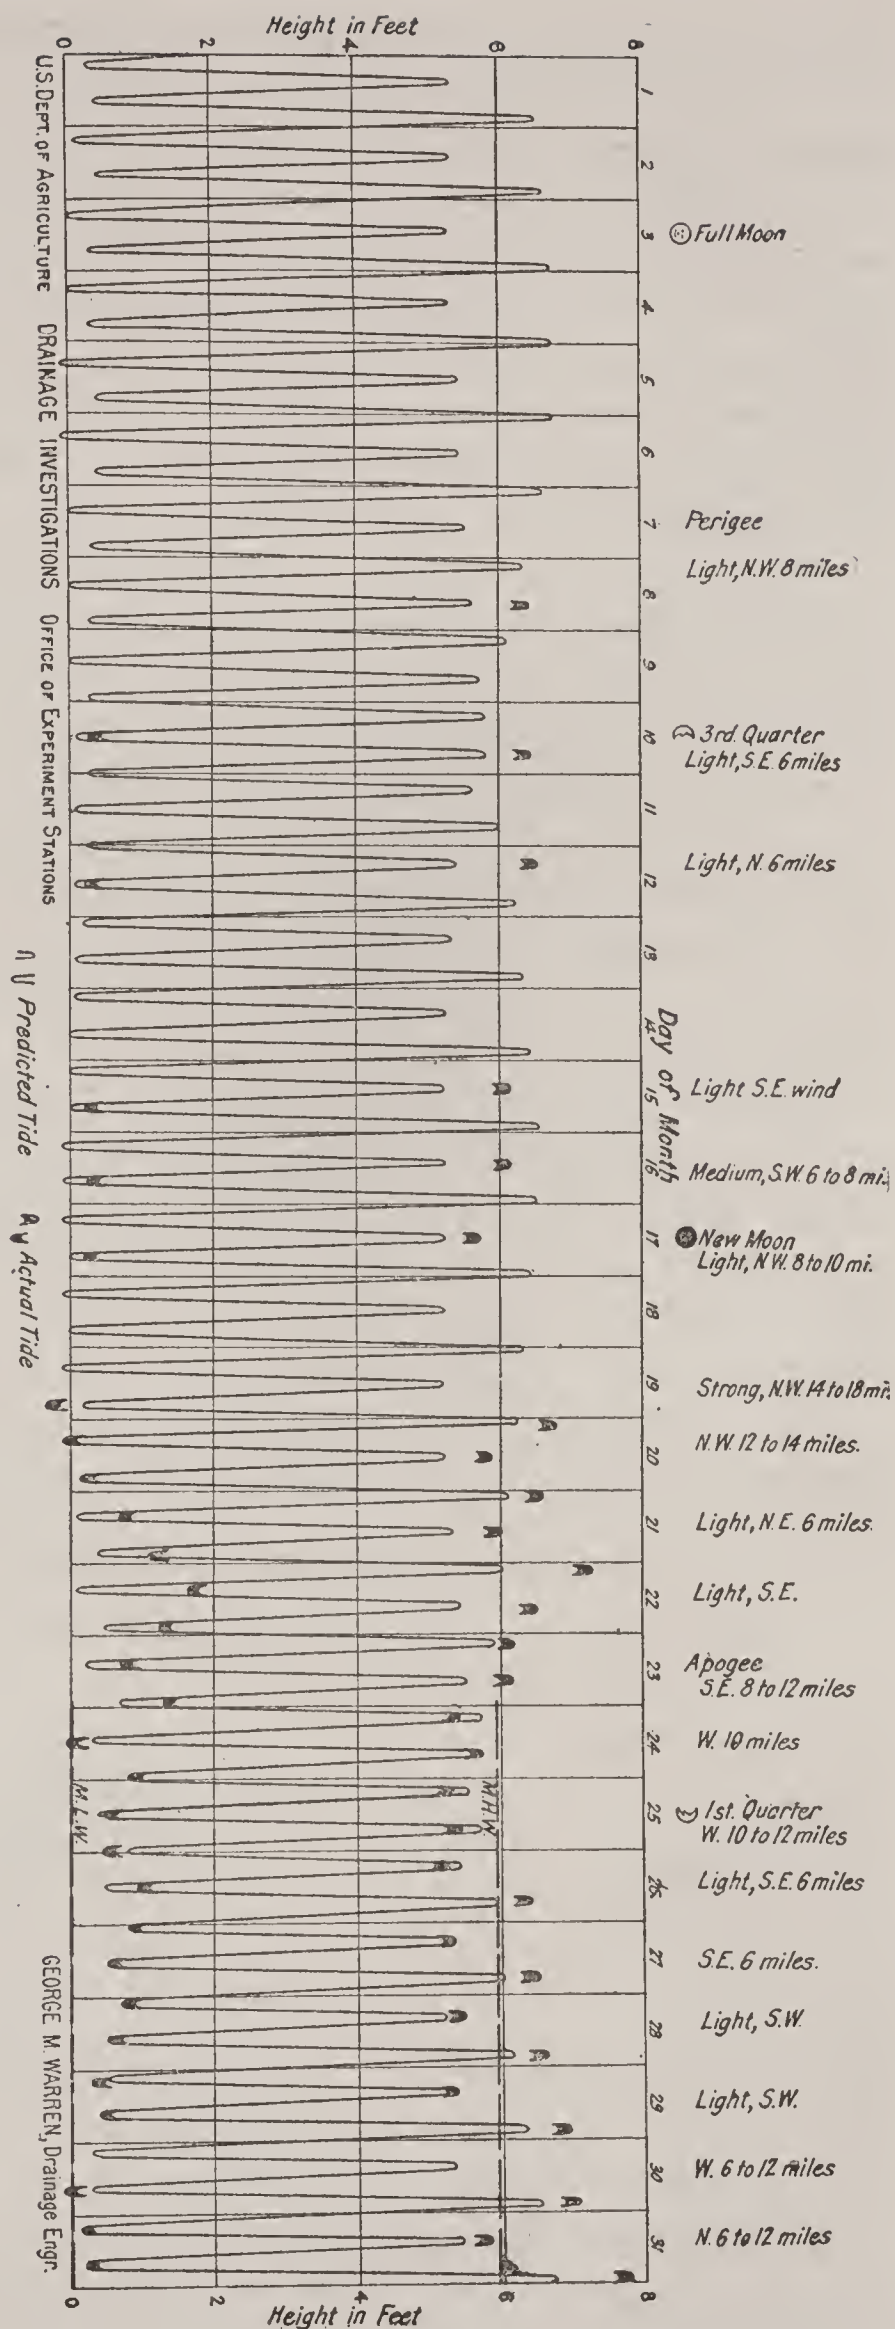 Height in Feet
0 2 4 6 8
1
2
3
4
5
6
7
8
9
10
11
12
13
14
15
16
17
18
19
20
21
22
23
24
25
26
27
28
29
30
31
Day of Month
Full Moon
Perigee
Light, N.W. 8 miles
3rd. Quarter
Light, S.E. 6 miles
Light, N. 6 miles
Light S.E. wind
Medium, S.W. 6 to 8 mi.
New Moon
Light, N.W. 8 to 10 mi.
Strong, N.W. 14 to 18 mi.
N.W. 12 to 14 miles.
Light, N.E. 6 miles.
Light, S.E.
Apogee
S.E. 8 to 12 miles
W. 10 miles
1st. Quarter
W. 10 to 12 miles
Light, S.E. 6 miles
S.E. 6 miles.
Light, S.W.
Light, S.W.
W. 6 to 12 miles
N. 6 to 12 miles
M.H.W.
M.L.W.
0 2 4 6 8
Height in Feet
U.S. DEPT. OF AGRICULTURE DRAINAGE INVESTIGATIONS OFFICE OF EXPERIMENT STATIONS
Predicted Tide Actual Tide
GEORGE M. WARREN, Drainage Engr.